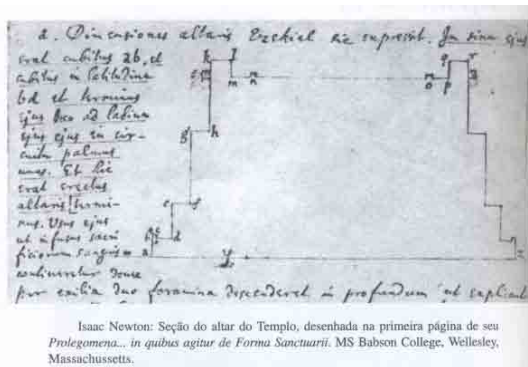 2. Dimensiones altaris Ezekiel sic expressit. In sinu ejus
erat cubitus ab, et
cubitus in latitudine
bd et terminus
ejus ad labium
ejus ejus in cir-
cuitu palmus
unus. Et hic
erat
altaris termi-
nus. Usus ejus
ut infusus sacri
ficiorum sanguis
contineretur donec
per exilia duo foramina descenderet in profundum ut explicat
k l
m n
m
o p
q r
g h
e f
d
a
z
Isaac Newton: Seção do altar do Templo, desenhada na primeira página de seu
Prolegomena... in quibus agitur de Forma Sanctuarii. MS Babson College, Wellesley,
Massachussetts.